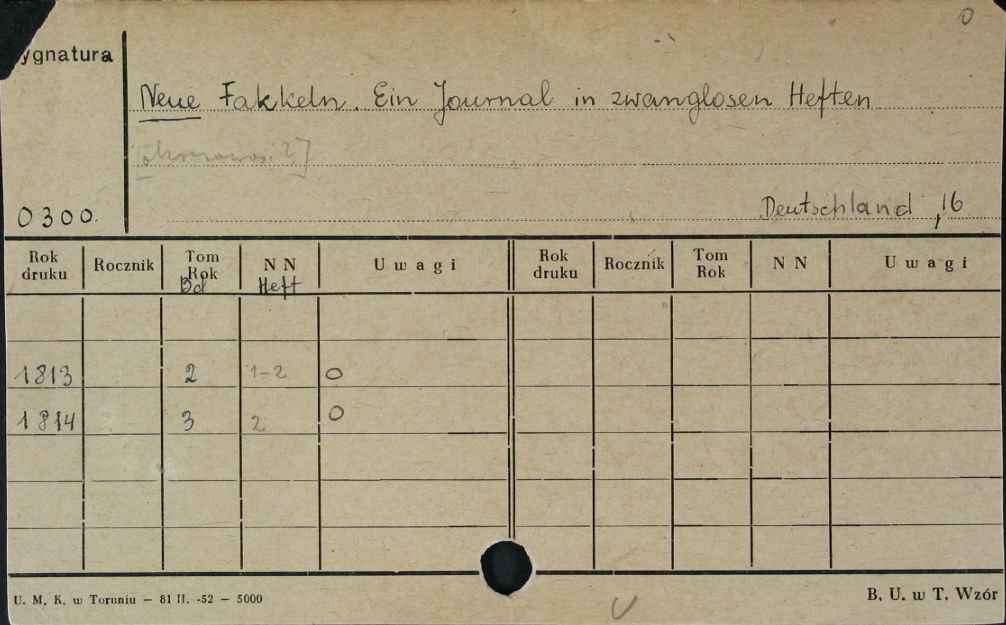 0
ygnatura
Neue Fakkeln. Ein Journal in zwanglosen Heften
0300.
Deutschland, 16
Rok druku Rocznik Tom Rok Bd NN Heft Uwagi Rok druku Rocznik Tom Rok NN Uwagi
1813 2 1-2 0
1814 3 2 0
U. M. K. w Toruniu — 81 II. -52 — 5000
B. U. w T. Wzór